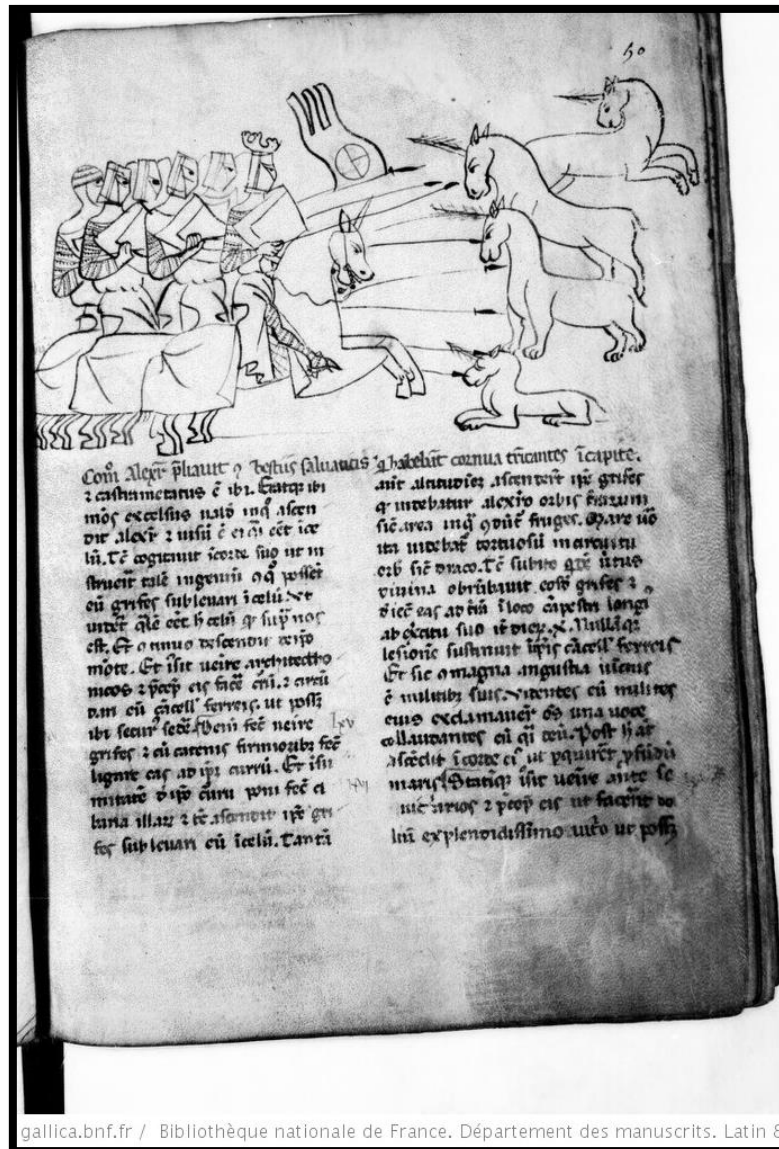 50
Com̃ Alexr̃ p̃liauit ꝯ bestiis saluaticis q̃ habebãt cornua trĩcantes ĩ capite.
⁊ castra metatus ẽ ibi. Eratqȝ ibi
mõs excelsus ualð in q̃ ascen
dit alexr̃ ⁊ uisũ ẽ ei q̃i eẽt ĩ ce
lũ. Tẽ cogitauit ĩ corde suo ut in
strueret tale ingeniũ posset
eũ grifes subleuari ĩ celũ. Et
uideret q̃le eẽt h̃ celũ q̃ sup̃ nos
est. Et ꝯtinuo descendit de ip̃o
mõte. Et iũsit ueire architecto
nicos ⁊ p̃cep̃ eis facẽ
eũ cãcell̃ ferreis. ut possȝ
ibi secur̃ fec̃ ueire
grifes ⁊ cũ catenis firmioribȝ fec̃
ligare eas ad ip̃m currũ. Et ĩ sũ
mitate ip̃o curru poni fec̃ ci
baria illaꝝ ⁊ ip̃e gri
fes subleuari eũ ĩ celũ. Tantã
aũt altitudĩez ascenderũt ip̃e grifes
q̃ uidebatur alexr̃o orbis terrarum
sic̃ area in q̃ ꝯdũt̃ fruges. Mare uõ
ita uidebat̃ tortuosũ in arcuitu
orb̃ sic̃ draco. Tẽ subito uirtus
diuina obũbrauit eosð grifes ⁊
eas ad t̃rã ĩ loco cãpestri longi
ab exc̃itu suo it̃ dieꝝ .X. Nullãqȝ
lesionẽ sustinuit ip̃is cãcell̃ ferreis
Et sic ꝯ magna angustia
ẽ militibȝ suis. Videntes eũ milites
eius exclamauer̃ oẽs una uoce
collaudantes eũ q̃i deũ. Post h̃ aũt
ascẽdit ĩ corde ei᷒ ut ꝑquireret ꝓfũdũ
maris. Statĩqȝ iũsit ueire ante se
uitrarios ⁊ p̃cep̃ eis ut facerẽt do
liũ explendidissimo uitro ut possȝ
lxv
gallica.bnf.fr / Bibliothèque nationale de France. Département des manuscrits. Latin 8